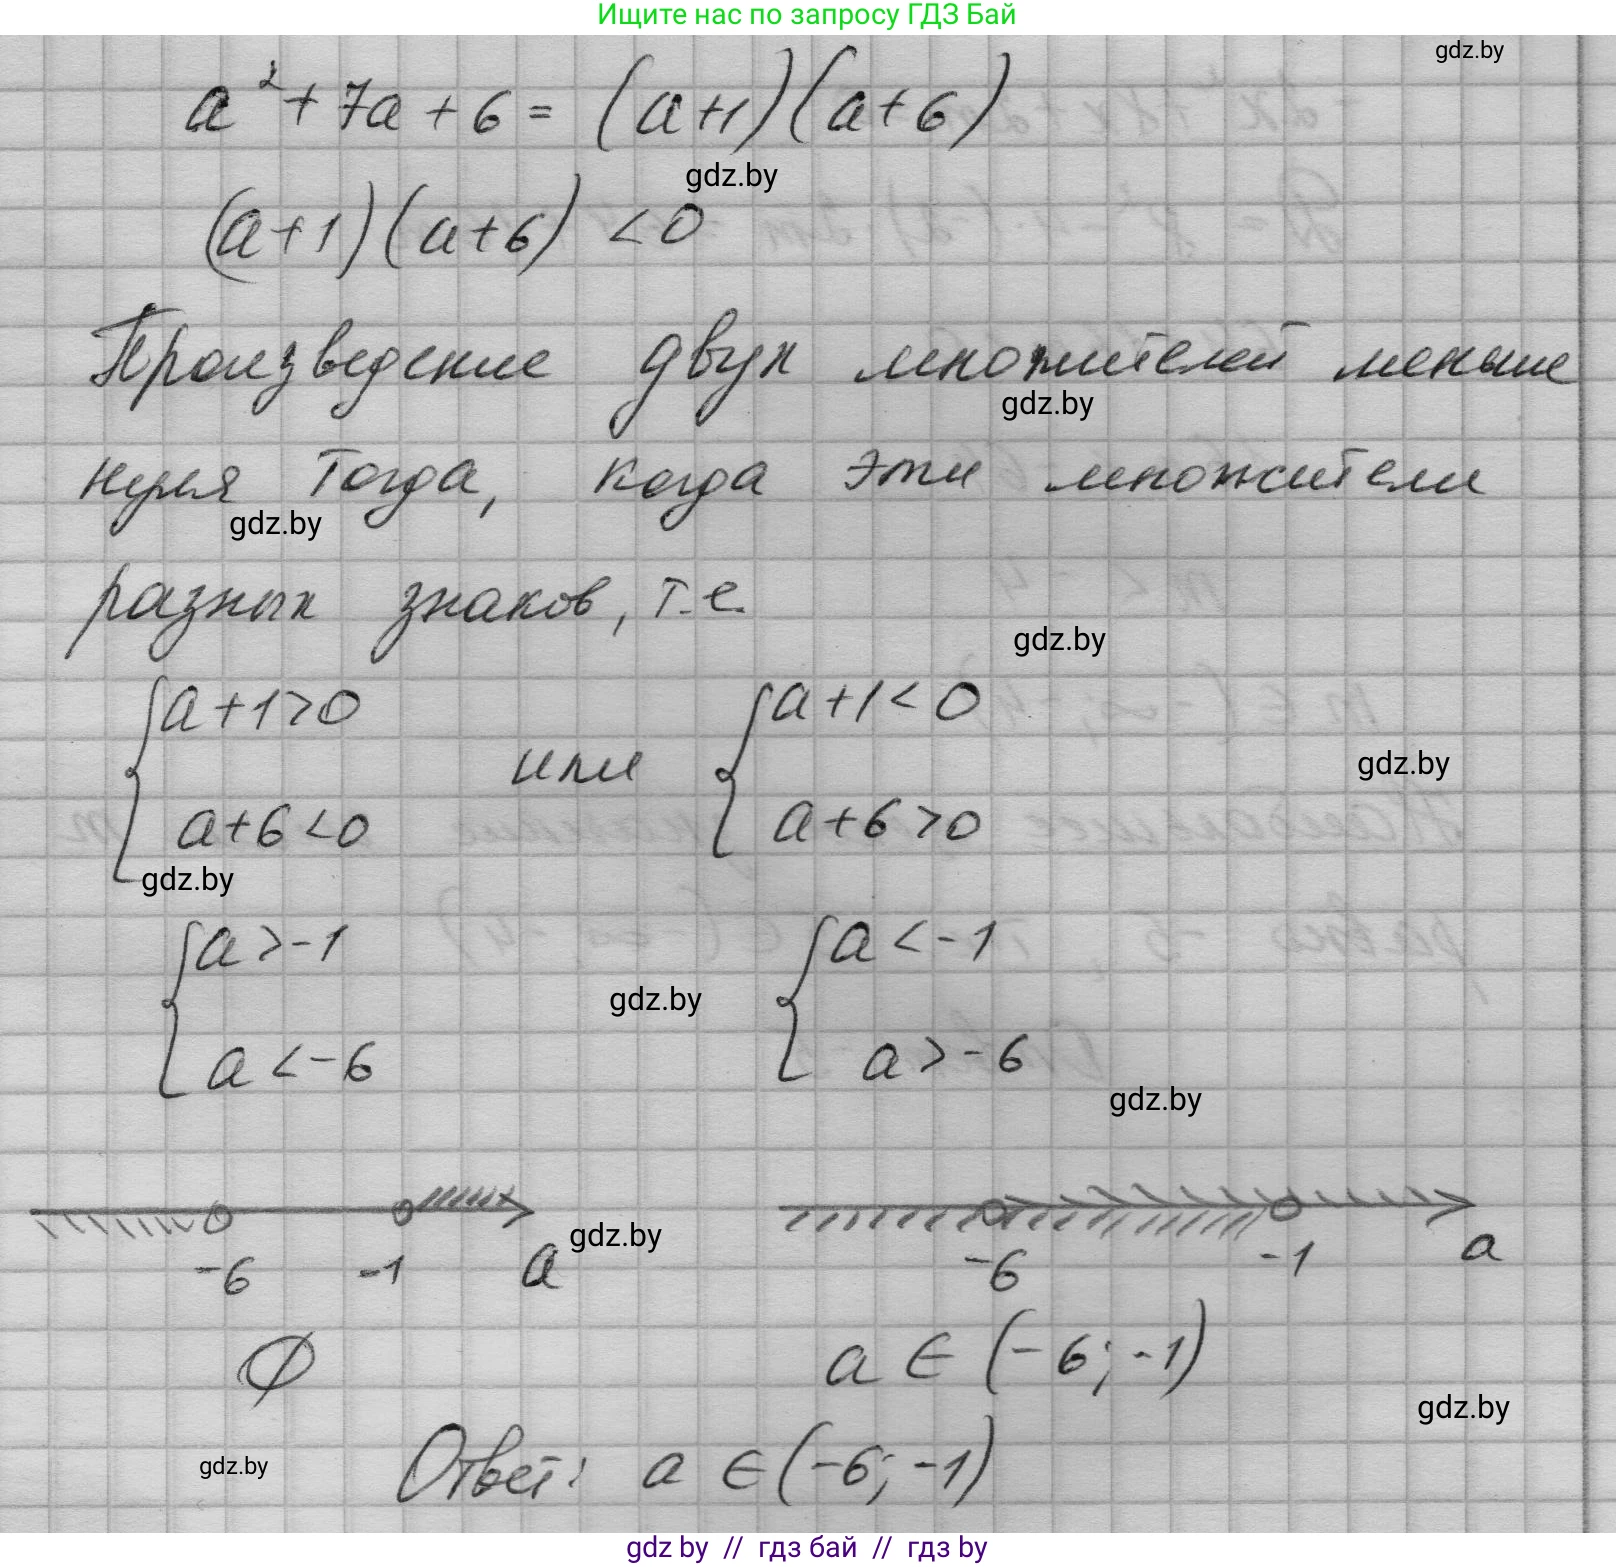 Ищите нас по запросу ГДЗ Бай
gdz.by
a² + 7a + 6 = (a+1)(a+6)
gdz.by
(a+1)(a+6) < 0
Произведение двух множителей меньше
gdz.by
нуля тогда, когда эти множители
gdz.by
разных знаков, т.е.
gdz.by
{a+1>0 или {a+1<0
gdz.by
a+6<0 a+6>0
gdz.by
{a>-1 {a<-1
gdz.by
a<-6 a>-6
gdz.by
gdz.by
-6 -1 a -6 -1 a
∅ a ∈ (-6; -1)
gdz.by
gdz.by
Ответ: a ∈ (-6; -1)
gdz by // гдз бай // гдз by